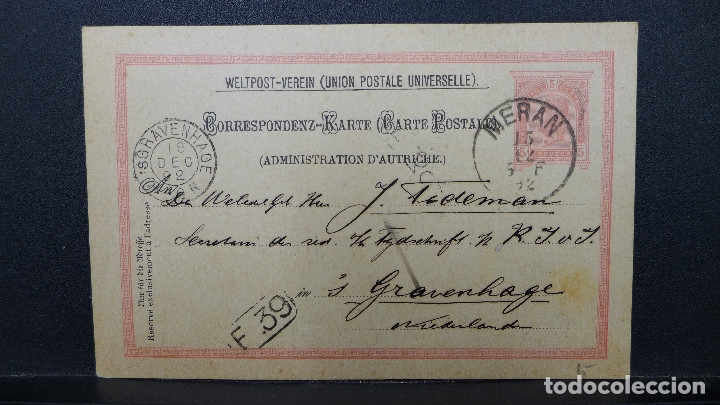 WELTPOST-VEREIN (UNION POSTALE UNIVERSELLE).
Correspondenz-Karte (Carte Postale)
(ADMINISTRATION D'AUTRICHE.)
5
5
MERAN
15
12
92
'SGRAVENHAGE
18
DEC
92
An
J. Tideman
Secretaris der red. v/h tydschrift v. K.I.v.I.
in 's Gravenhage
Nederland
Nur für die Adresse
Réservé exclusivement à l'adresse
F 39
todocoleccion